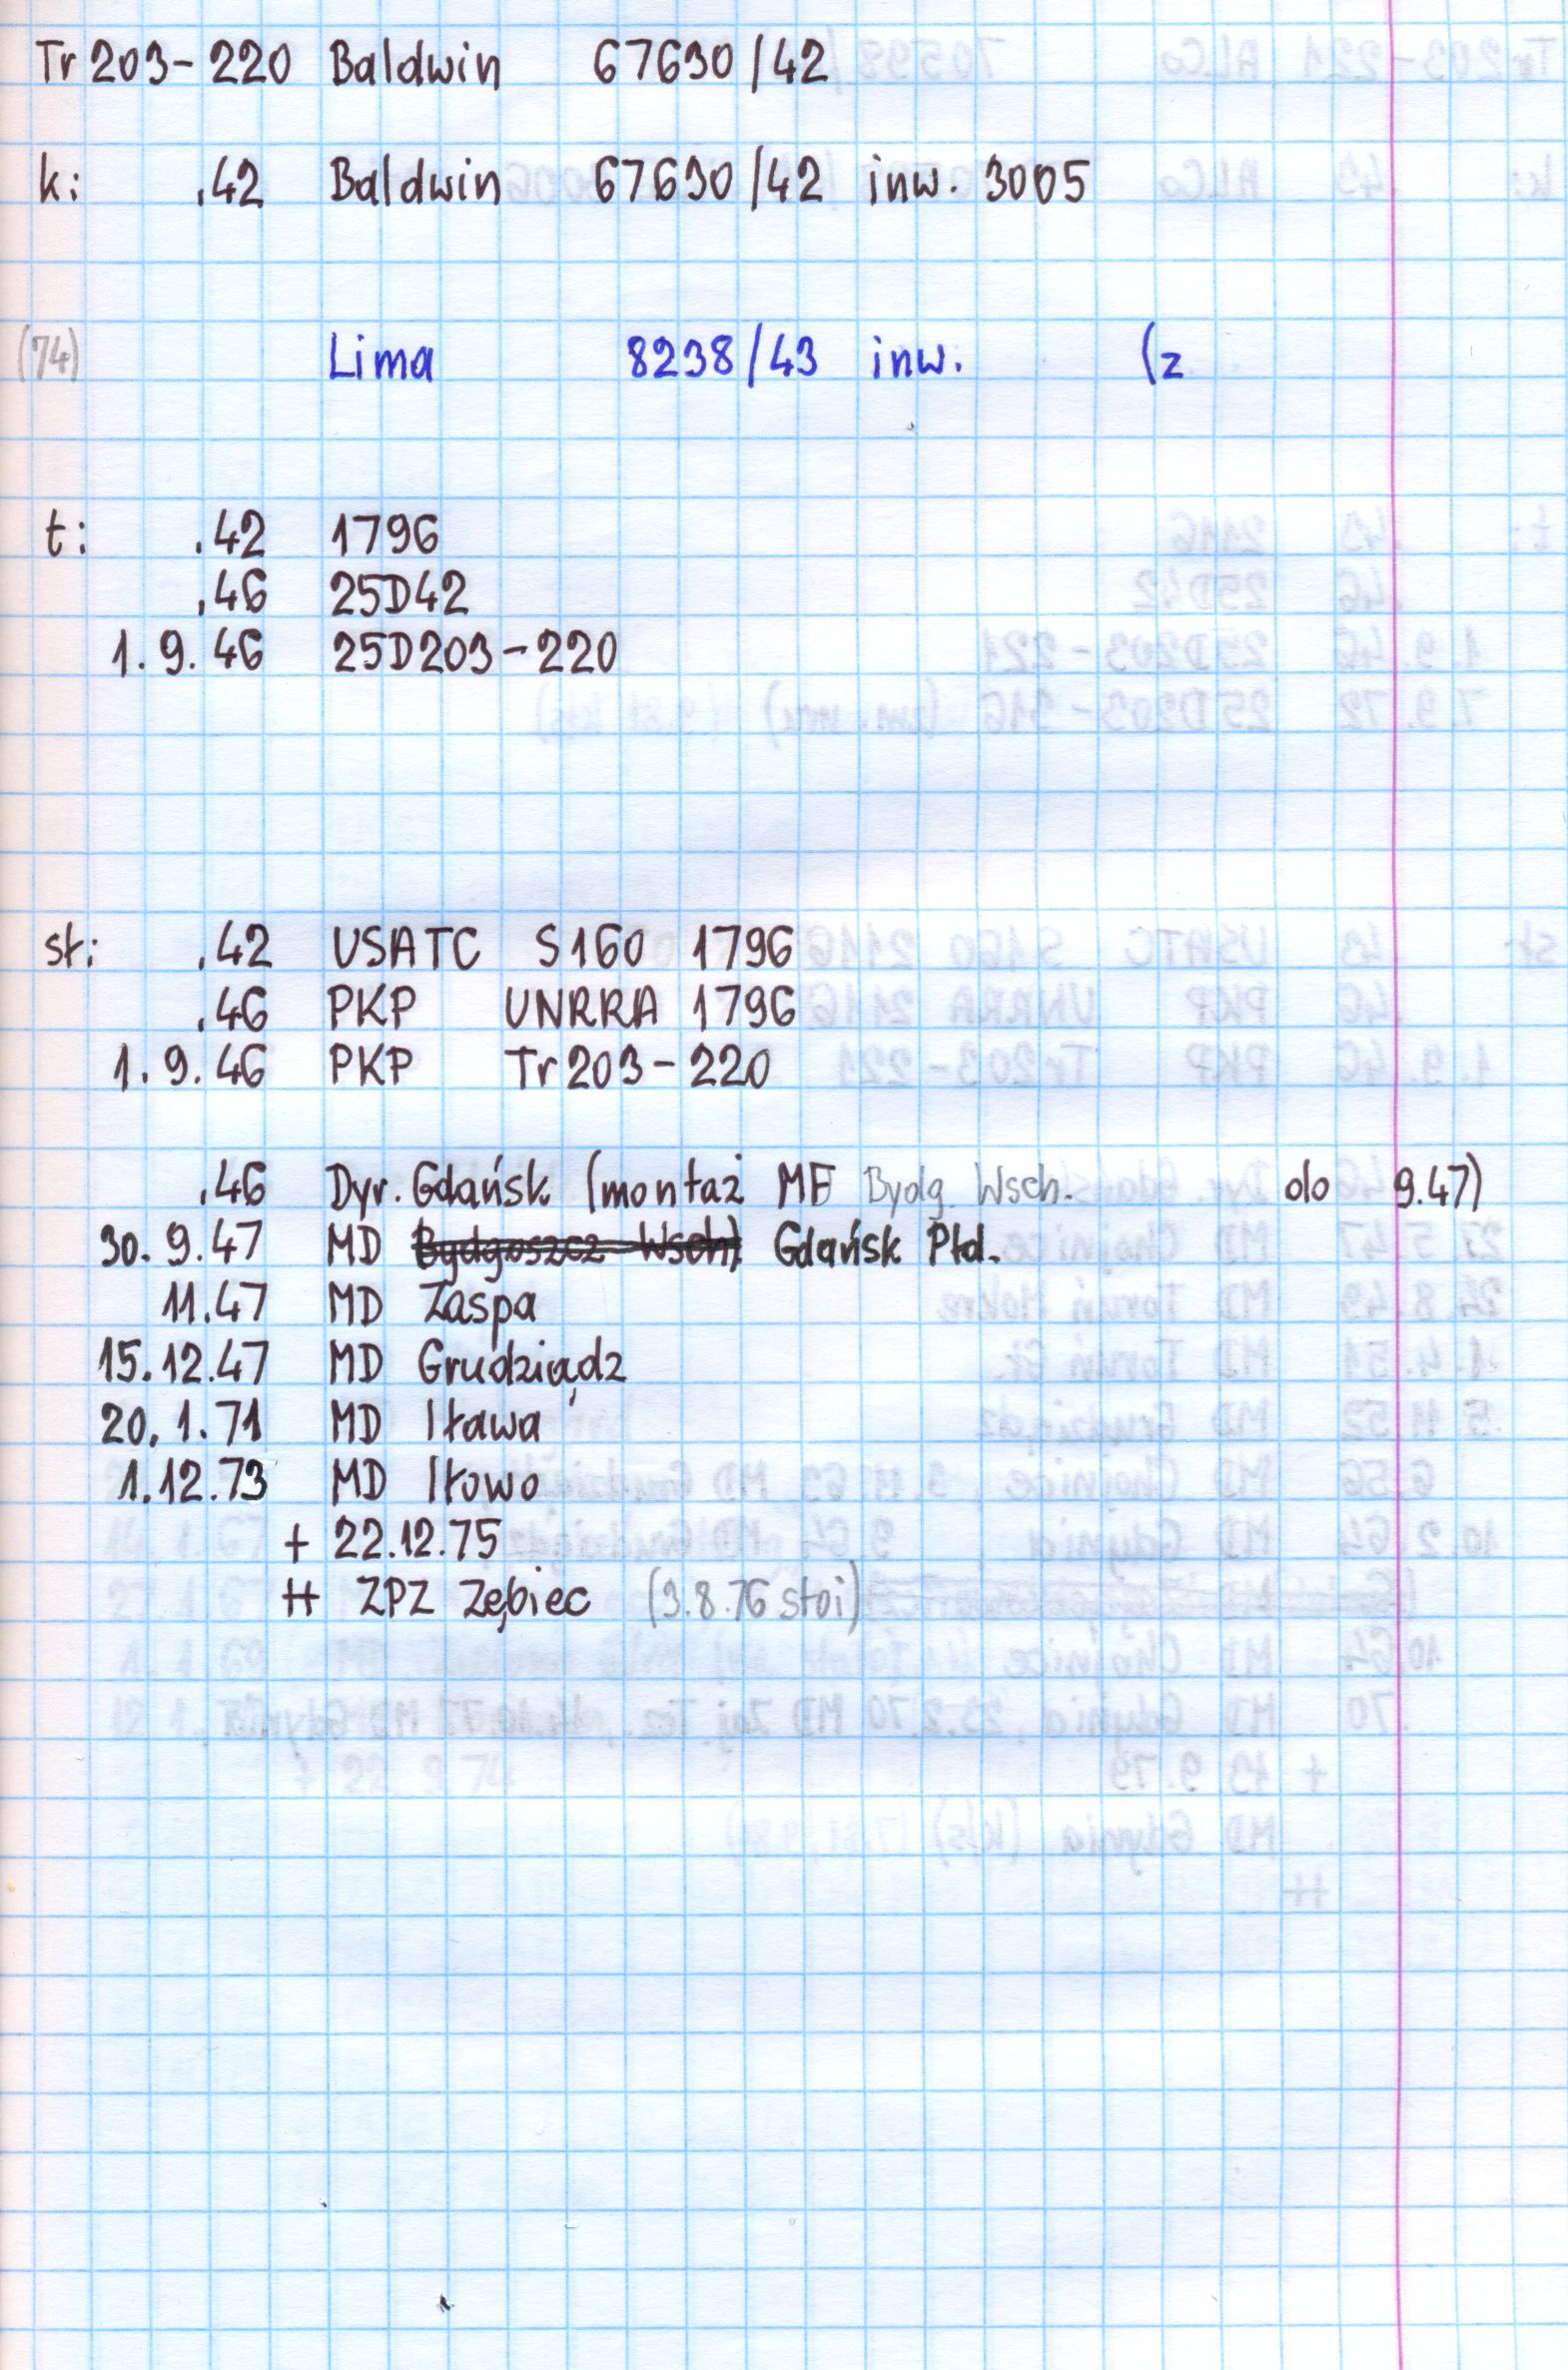 Tr203-220 Baldwin 67630/42
k: .42 Baldwin 67630/42 inw. 3005
(74) Lima 8238/43 inw. (z
t: .42 1796
.46 25D42
1.9.46 25D203-220
st: .42 USATC S160 1796
.46 PKP UNRRA 1796
1.9.46 PKP Tr203-220
.46 Dyr. Gdańsk (montaż ME Bydg. Wsch. do 9.47)
30.9.47 MD Bydgoszcz Wsch) Gdańsk Płd.
11.47 MD Zaspa
15.12.47 MD Grudziądz
20.1.71 MD Iława
1.12.73 MD Iłowo
+ 22.12.75
++ ZPZ Zębiec (3.8.76 stoi)